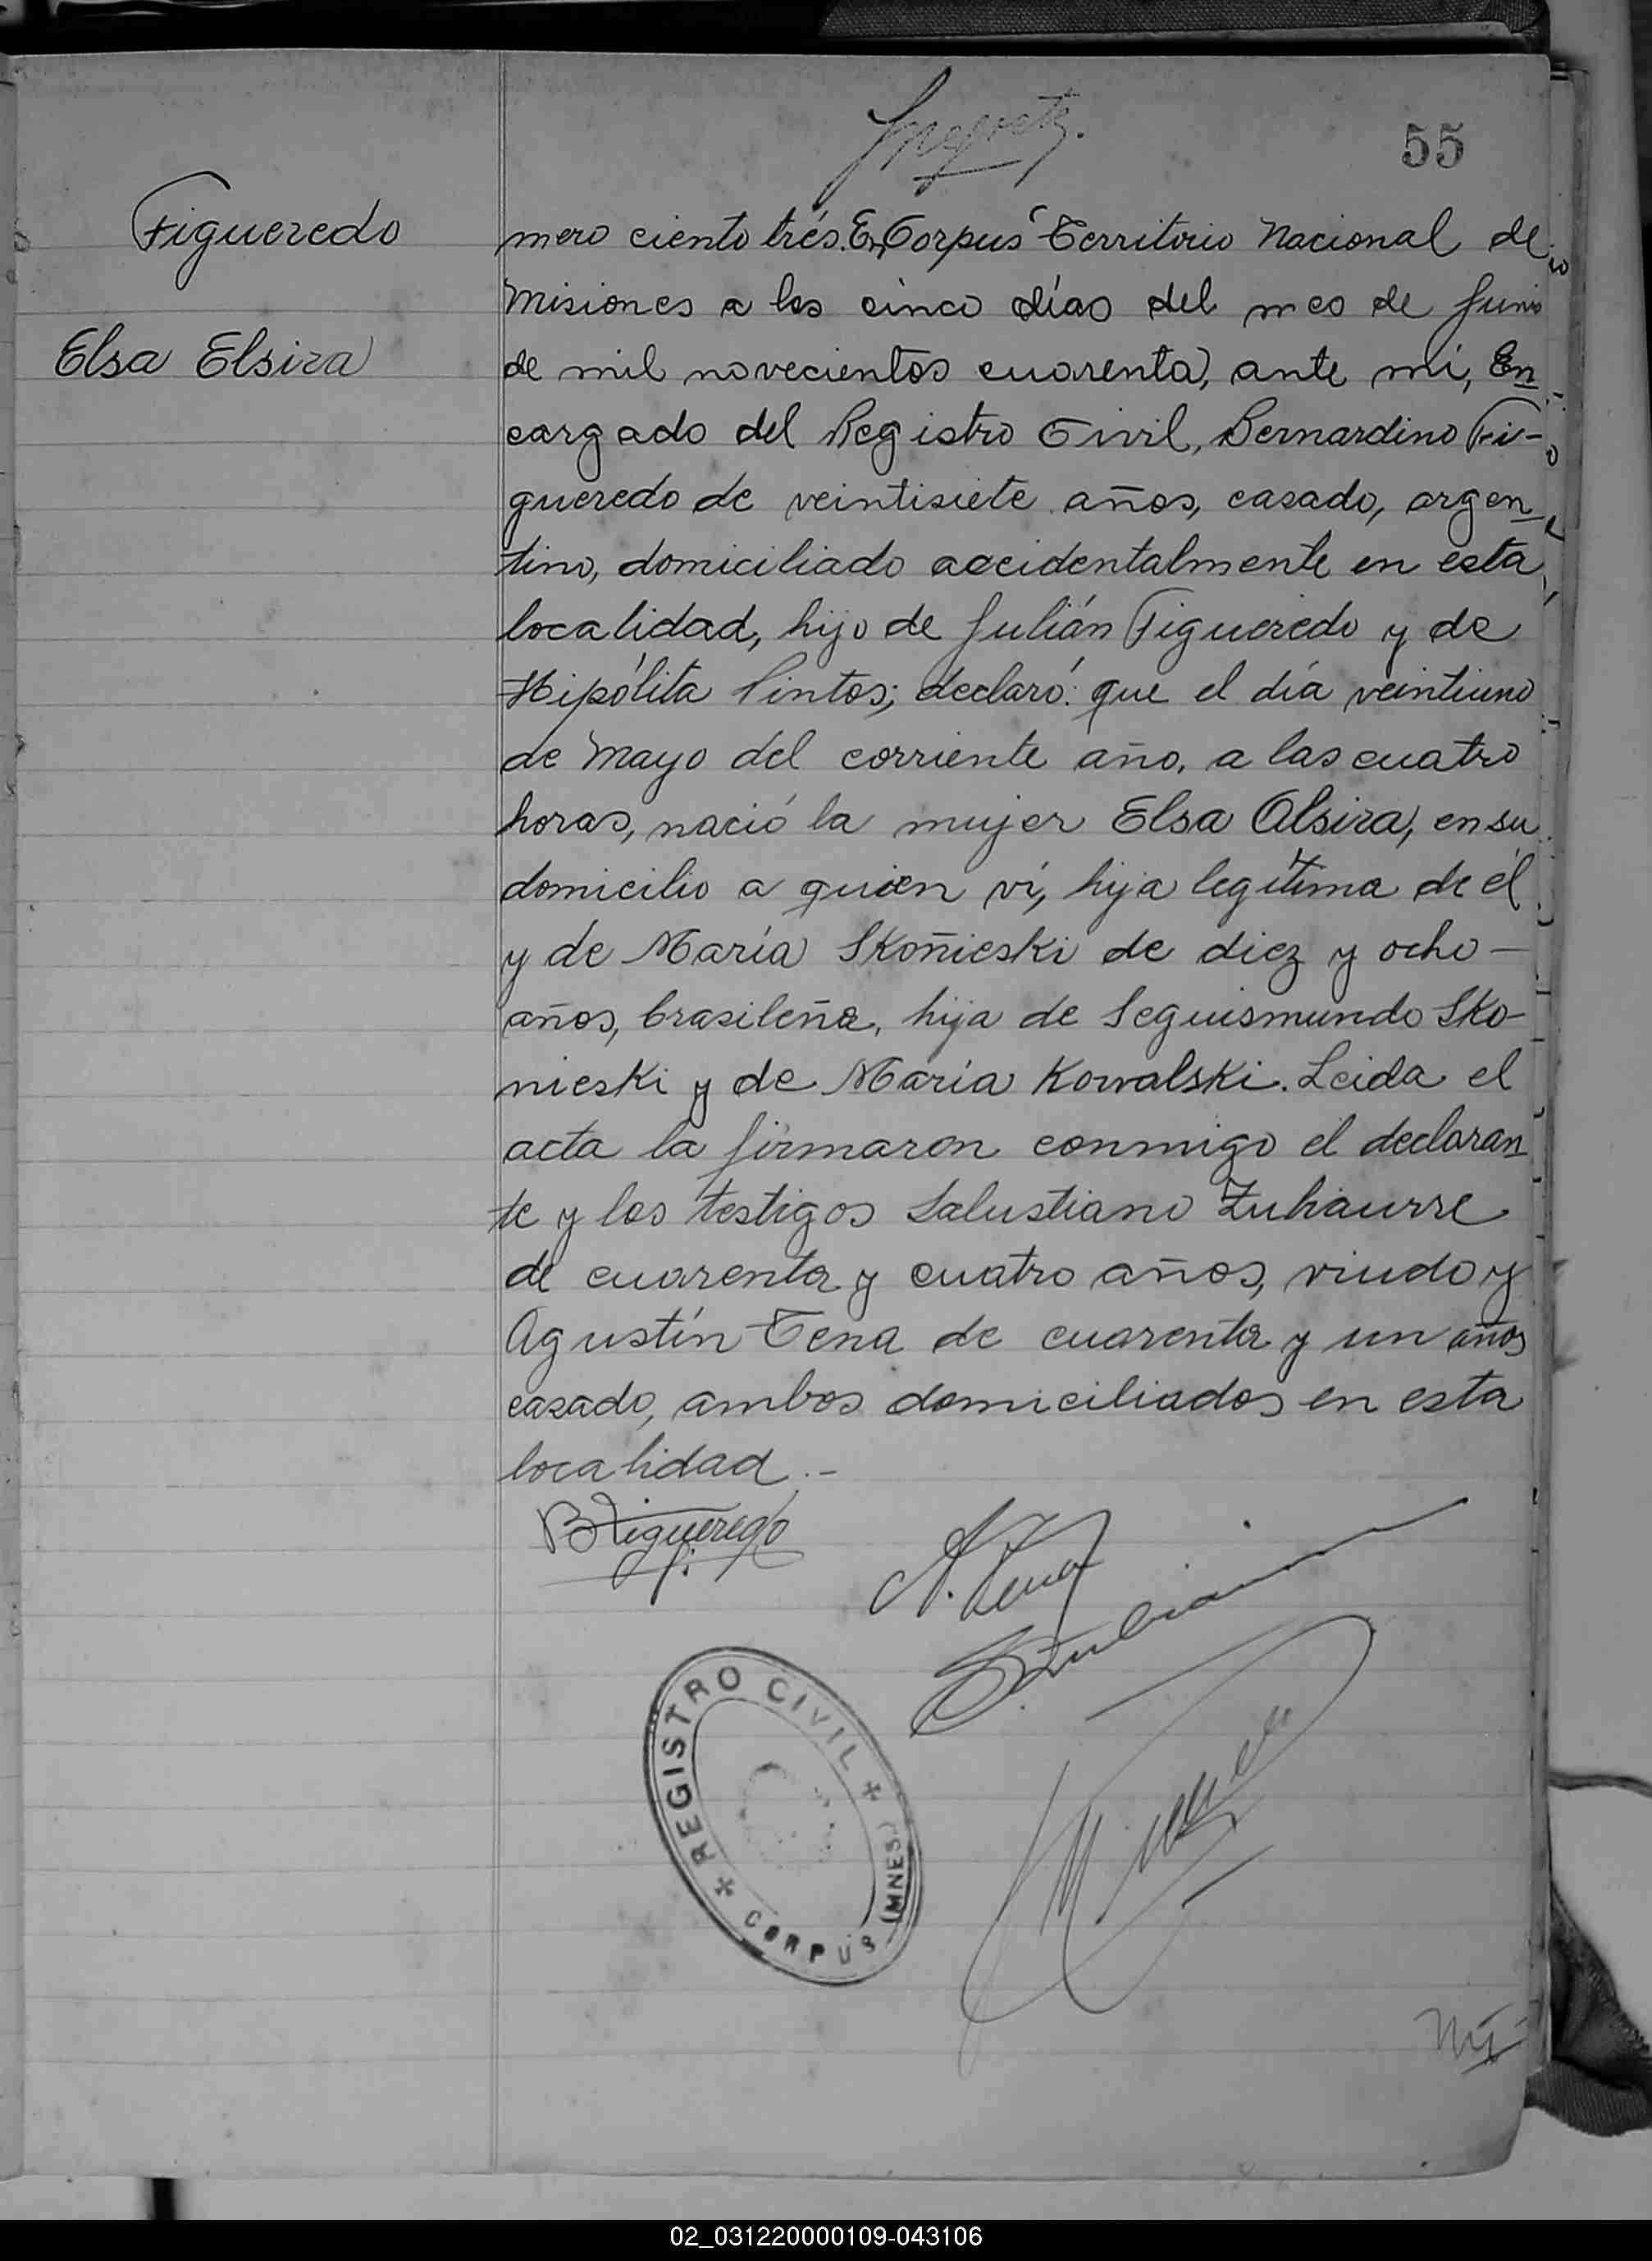 55
Figueredo
Elsa Elsira
mero ciento trés. En Corpus Territorio Nacional de
Misiones a los cinco días del mes de Junio
de mil novecientos cuarenta, ante mí, En
cargado del Registro Civil, Bernardino Fi-
gueredo de veintisiete años, casado, argen
tino, domiciliado accidentalmente en esta
localidad, hijo de Julián Figueredo y de
Hipólita Pintos; declaró: que el día veintiuno
de Mayo del corriente año, a las cuatro
horas, nació la mujer Elsa Alsira, en su
domicilio a quien ví, hija legítima de él
y de María Skoñieski de diez y ocho —
años, brasileña, hija de Seguismundo Sko-
nieski y de María Kowalski. Leida el
acta la firmaron conmigo el declaran
te y los testigos Salustiano Zuhiaurre
de cuarenta y cuatro años, viudo y
Agustín Tena de cuarenta y un años
casado, ambos domiciliados en esta
localidad.-
B Figueredo
A. Tena
REGISTRO CIVIL
CORPUS (MNES)
02_031220000109-043106